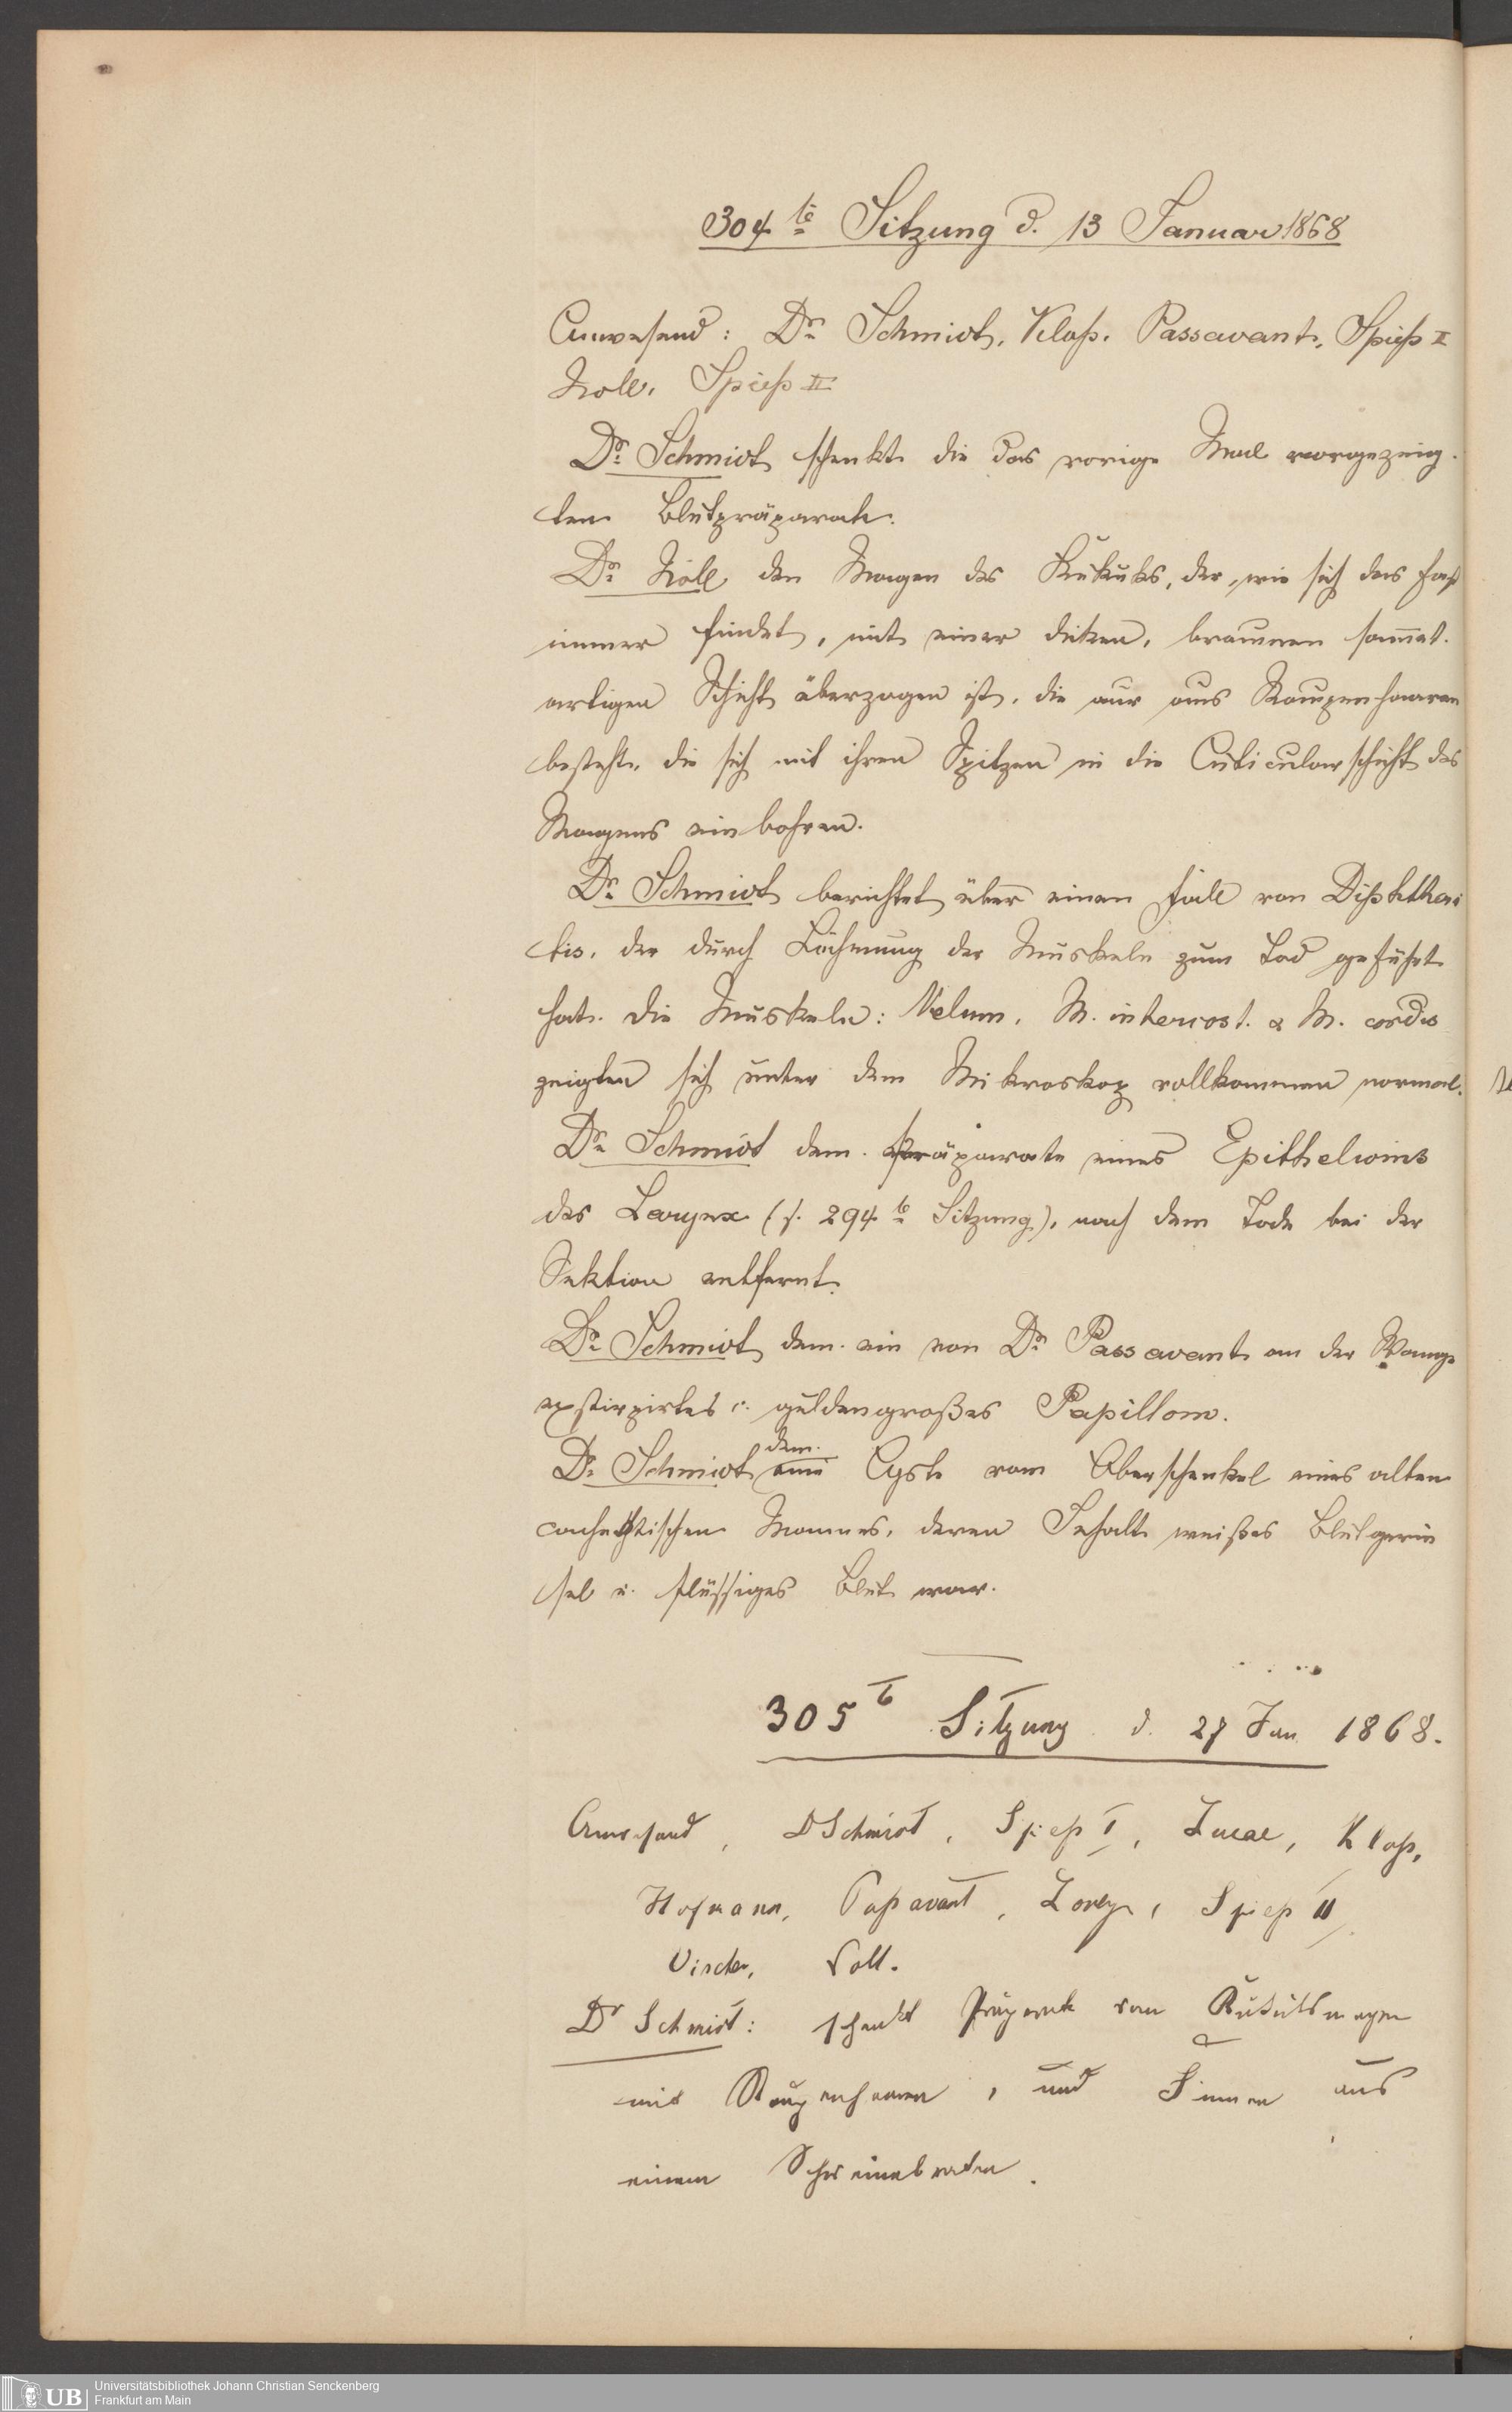 304te Sitzung d. 13 Januar 1868
Anwesend: Dr. Schmidt, Kloß, Passavant, Spieß I
Noll, Spieß II
Dr. Schmidt schenkt die das vorige Mal vorgezeig-
ten Blutpräparate.
Dr. Noll den Magen des Kukuks, der, wie sich das fast
immer findet, mit einer dicken, braunen sammet-
artigen Schicht überzogen ist, die nur aus Raupenhaaren
besteht, die sich mit ihren Spitzen in die Cuticularschicht des
Magens einbohren.
Dr. Schmidt berichtet über einen Fall von Diphtheri
tis, der durch Lähmung der Muskeln zum Tod geführt
hat. Die Muskeln: Velum, M. intercost. & M. cordis
zeigten sich unter dem Mikroskop vollkommen normal.
Dr. Schmidt dem. Präparate eines Epithelioms
des Larynx (s. 294te Sitzung), nach dem Tode bei der
Sektion entfernt.
Dr. Schmidt dem. ein von Dr. Passavant an der Wange
exstirpirtes c. guldengroßes Papillom.
Dr. Schmidt dem. eine Cyste vom Oberschenkel eines alten
cachektischen Mannes, deren Inhalt weißes Blutgerin
sel u. flüssiges Blut war.
305te Sitzung d. 27 Jan 1868.
Anwesend, D Schmidt, Spieß I, Lucae, Kloß,
Hofmann, Paßavant, Lorey, Spieß II
Vischer, Noll.
Dr Schmidt: schenkt Präparate vom Kukuksmagen
mit Raupenhaaren, und Finnen aus
einem Schweinebraten.
Universitätsbibliothek Johann Christian Senckenberg
Frankfurt am Main
UB